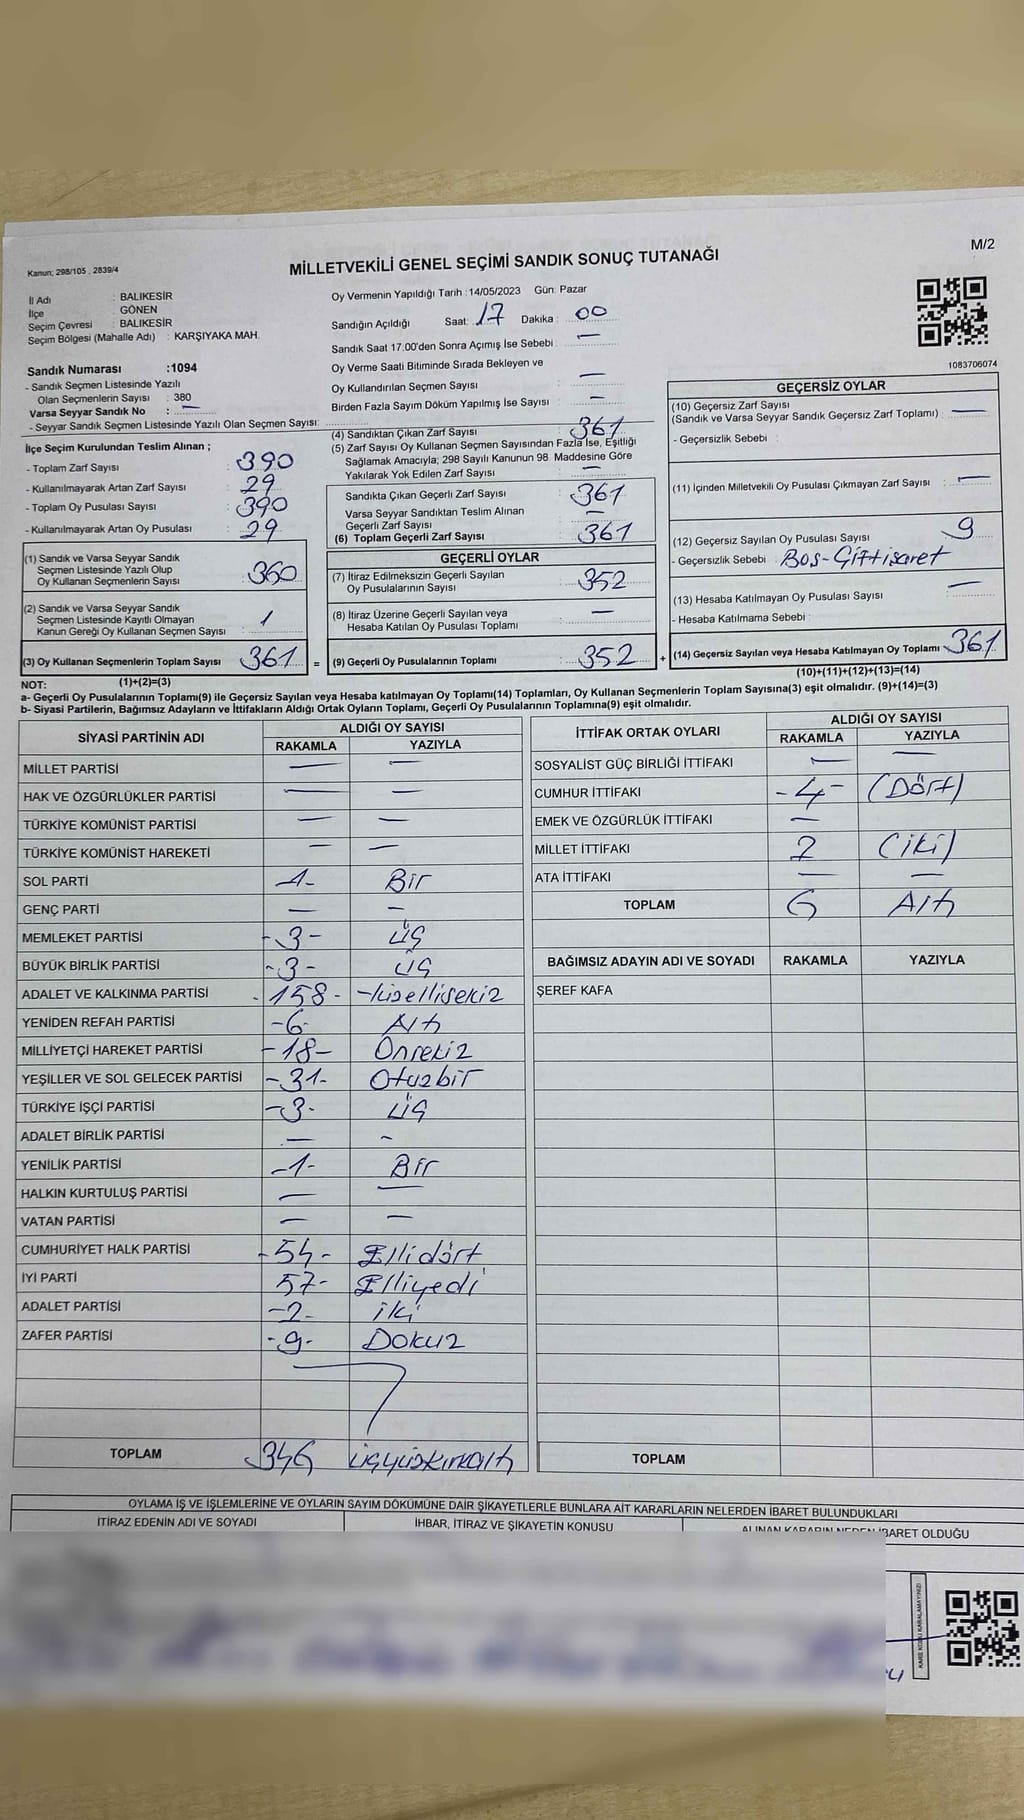 M/2
Kanun; 298/105 , 2839/4
MİLLETVEKİLİ GENEL SEÇİMİ SANDIK SONUÇ TUTANAĞI
İl Adı : BALIKESİR
İlçe : GÖNEN
Seçim Çevresi : BALIKESİR
Seçim Bölgesi (Mahalle Adı) : KARŞIYAKA MAH.
Sandık Numarası :1094
- Sandık Seçmen Listesinde Yazılı
Olan Seçmenlerin Sayısı : 380
Varsa Seyyar Sandık No : —
- Seyyar Sandık Seçmen Listesinde Yazılı Olan Seçmen Sayısı:
İlçe Seçim Kurulundan Teslim Alınan ;
- Toplam Zarf Sayısı : 390
- Kullanılmayarak Artan Zarf Sayısı : 29
- Toplam Oy Pusulası Sayısı : 390
- Kullanılmayarak Artan Oy Pusulası : 29
(1) Sandık ve Varsa Seyyar Sandık
Seçmen Listesinde Yazılı Olup
Oy Kullanan Seçmenlerin Sayısı : 360
(2) Sandık ve Varsa Seyyar Sandık
Seçmen Listesinde Kayıtlı Olmayan
Kanun Gereği Oy Kullanan Seçmen Sayısı : 1
(3) Oy Kullanan Seçmenlerin Toplam Sayısı 361 =
Oy Vermenin Yapıldığı Tarih :14/05/2023 Gün: Pazar
Sandığın Açıldığı Saat: 17 Dakika : 00
Sandık Saat 17:00'den Sonra Açımış İse Sebebi : —
Oy Verme Saati Bitiminde Sırada Bekleyen ve
Oy Kullandırılan Seçmen Sayısı : —
Birden Fazla Sayım Döküm Yapılmış İse Sayısı : —
(4) Sandıktan Çıkan Zarf Sayısı : 361
(5) Zarf Sayısı Oy Kullanan Seçmen Sayısından Fazla İse, Eşitliği
Sağlamak Amacıyla; 298 Sayılı Kanunun 98. Maddesine Göre
Yakılarak Yok Edilen Zarf Sayısı : —
Sandıkta Çıkan Geçerli Zarf Sayısı : 361
Varsa Seyyar Sandıktan Teslim Alınan
Geçerli Zarf Sayısı : —
(6) Toplam Geçerli Zarf Sayısı : 361
GEÇERLİ OYLAR
(7) İtiraz Edilmeksizin Geçerli Sayılan
Oy Pusulalarının Sayısı : 352
(8) İtiraz Üzerine Geçerli Sayılan veya
Hesaba Katılan Oy Pusulası Toplamı : —
(9) Geçerli Oy Pusulalarının Toplamı : 352 +
1083706074
GEÇERSİZ OYLAR
(10) Geçersiz Zarf Sayısı
(Sandık ve Varsa Seyyar Sandık Geçersiz Zarf Toplamı) : —
- Geçersizlik Sebebi :
(11) İçinden Milletvekili Oy Pusulası Çıkmayan Zarf Sayısı : —
(12) Geçersiz Sayılan Oy Pusulası Sayısı : 9
- Geçersizlik Sebebi : Boş-Çiftişaret
(13) Hesaba Katılmayan Oy Pusulası Sayısı : —
- Hesaba Katılmama Sebebi :
(14) Geçersiz Sayılan veya Hesaba Katılmayan Oy Toplamı 361
NOT: (1)+(2)=(3)
(10)+(11)+(12)+(13)=(14)
a- Geçerli Oy Pusulalarının Toplamı(9) ile Geçersiz Sayılan veya Hesaba katılmayan Oy Toplamı(14) Toplamları, Oy Kullanan Seçmenlerin Toplam Sayısına(3) eşit olmalıdır. (9)+(14)=(3)
b- Siyasi Partilerin, Bağımsız Adayların ve İttifakların Aldığı Ortak Oyların Toplamı, Geçerli Oy Pusulalarının Toplamına(9) eşit olmalıdır.
SİYASİ PARTİNİN ADI ALDIĞI OY SAYISI
RAKAMLA YAZIYLA
MİLLET PARTİSİ — —
HAK VE ÖZGÜRLÜKLER PARTİSİ — —
TÜRKİYE KOMÜNİST PARTİSİ — —
TÜRKİYE KOMÜNİST HAREKETİ — —
SOL PARTİ -1- Bir
GENÇ PARTİ — —
MEMLEKET PARTİSİ -3- üç
BÜYÜK BİRLİK PARTİSİ -3- üç
ADALET VE KALKINMA PARTİSİ -158- -Yüzellisekiz
YENİDEN REFAH PARTİSİ -6- Altı
MİLLİYETÇİ HAREKET PARTİSİ -18- Onsekiz
YEŞİLLER VE SOL GELECEK PARTİSİ -31- Otuzbir
TÜRKİYE İŞÇİ PARTİSİ -3- üç
ADALET BİRLİK PARTİSİ — -
YENİLİK PARTİSİ -1- Bir
HALKIN KURTULUŞ PARTİSİ — —
VATAN PARTİSİ — —
CUMHURİYET HALK PARTİSİ -54- Ellidört
İYİ PARTİ 57- Elliyedi
ADALET PARTİSİ -2- iki
ZAFER PARTİSİ -9- Dokuz
TOPLAM 346 üçyüzkırkaltı
İTTİFAK ORTAK OYLARI ALDIĞI OY SAYISI
RAKAMLA YAZIYLA
SOSYALİST GÜÇ BİRLİĞİ İTTİFAKI — —
CUMHUR İTTİFAKI -4- (Dört)
EMEK VE ÖZGÜRLÜK İTTİFAKI —
MİLLET İTTİFAKI 2 (iki)
ATA İTTİFAKI — —
TOPLAM 6 Altı
BAĞIMSIZ ADAYIN ADI VE SOYADI RAKAMLA YAZIYLA
ŞEREF KAFA
TOPLAM
OYLAMA İŞ VE İŞLEMLERİNE VE OYLARIN SAYIM DÖKÜMÜNE DAİR ŞİKAYETLERLE BUNLARA AİT KARARLARIN NELERDEN İBARET BULUNDUKLARI
İTİRAZ EDENİN ADI VE SOYADI İHBAR, İTİRAZ VE ŞİKAYETİN KONUSU ALINAN KARARIN NEDEN İBARET OLDUĞU
KARE KODU KARALAMAYINIZ!